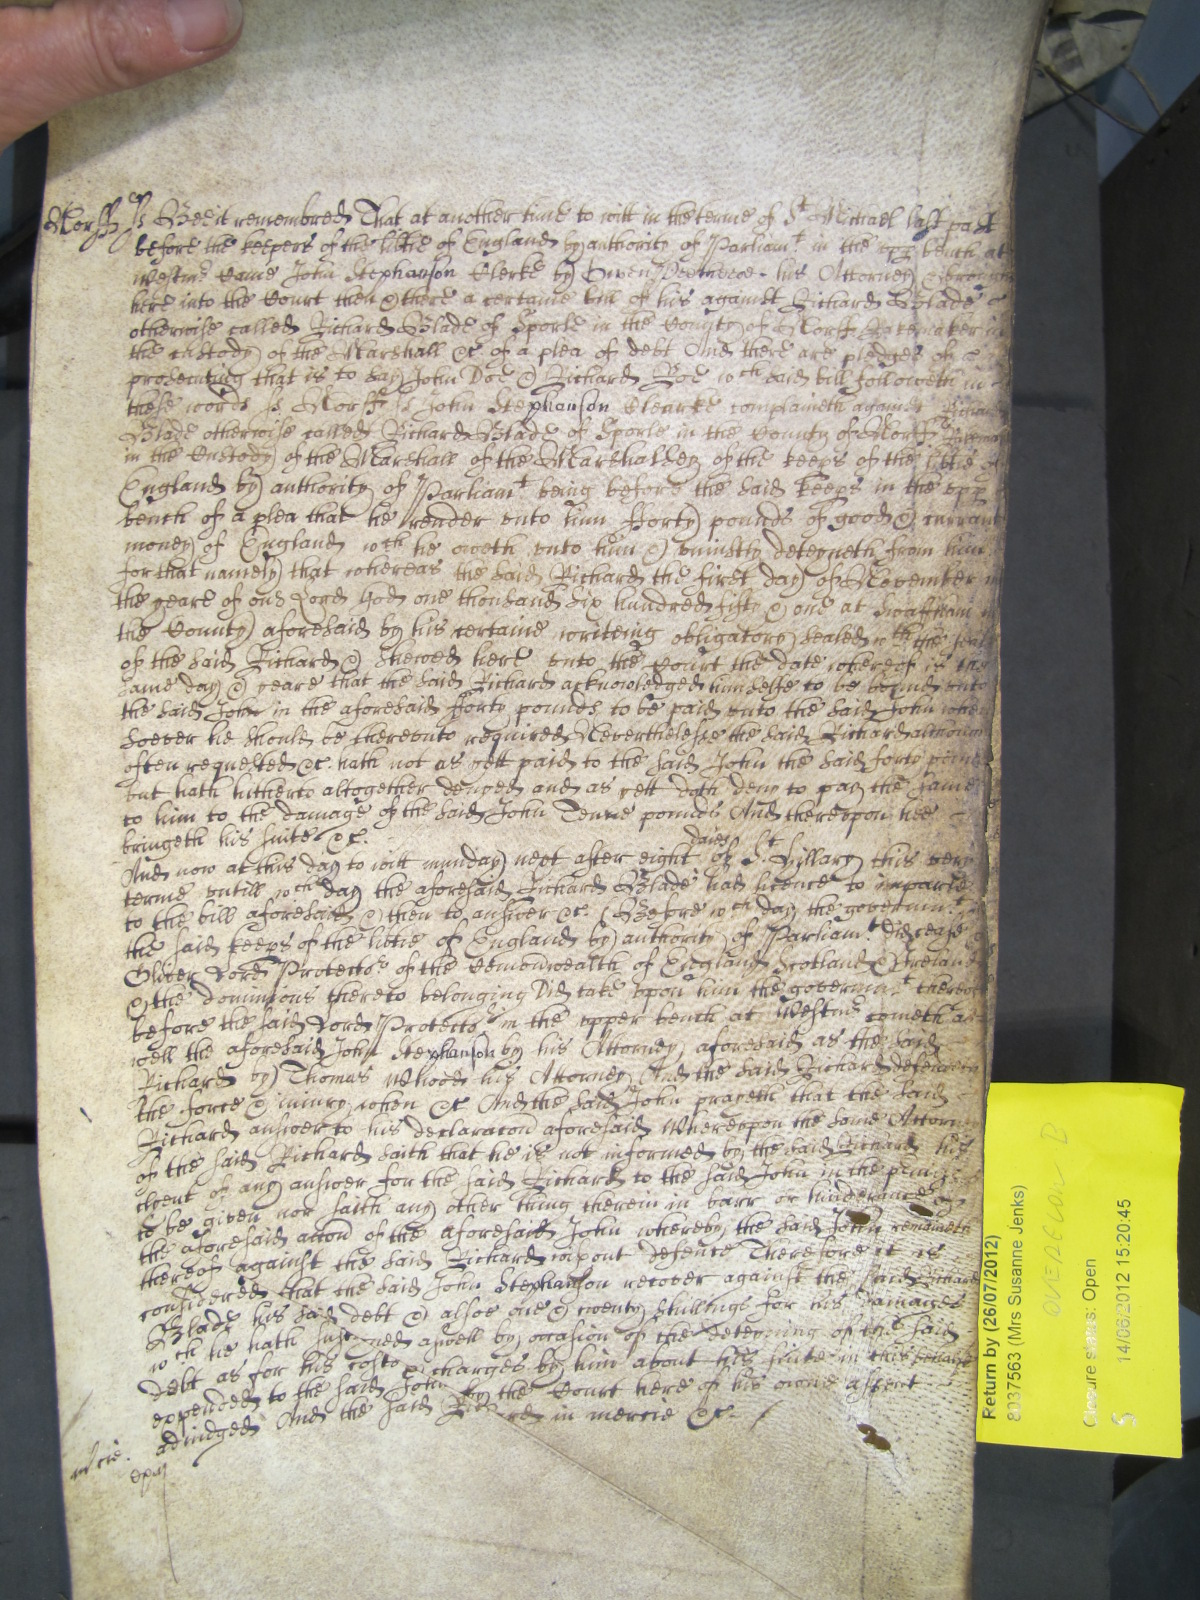 Norff ss Bee it remembred That at another time to witt in the terme of St Michael last past
before the keepers of the libtie of England by authority of Parliamt in the upp bench at
Westmr Came John Stephanson Clerke by Owen his Attorney & brought
here into the Court then & there a certaine bill of his against Richard Blade
otherwise called Richard Blade of Sporle in the County of Norff in
the custody of the Marshall &c of a plea of debt And there are pledges of
prosecuting that is to say John Doe & Richard Roe wch said bill followeth in
these words ss Norff ss John Stephanson Clearke complaineth against Richard
Blade otherwise called Richard Blade of Sporle in the County of Norff
in the Custody of the Marshall of the Marshalsey of the keeps of the libtie of
England by authority of Parliamt being before the said keeps in the upp
bench of a plea that he render unto him fforty pounds of good & currant
money of England wch he oweth unto him & uniustly deteyneth from him
for that namely that whereas the said Richard the first day of November in
the yeare of our Lord God one thousand six hundred fifty & one at Swaffham in
the County aforesaid by his certaine writeing obligatory sealed wth the seale
of the said Richard & shewed here unto the Court the date whereof is the
same day & yeare that the said Richard acknowledged himselfe to be bound unto
the said John in the aforesaid fforty pounds to be paid unto the said John when
soever he should be thereunto required Neverthelesse the said Richard although
often requested &c. hath not as yett paid to the said John the said forty pounds
but hath hitherto altogether denyed and as yett doth deny to pay the same
to him to the damage of the said John Tenne pounds And thereupon hee
bringeth his suite &c.
And now at this day to witt munday next after eight daies of St Hillary this very
terme untill wch day the aforesaid Richard Blade had licence to imparle
to the bill aforesaid & then to answer &c. Before wch day the governmt of
the said keeps of the libtie of England by authority of Parliamt did cease &
Oliver Lord Protector of the Comonwealth of England Scotland & Ireland
& the dominions thereto belonging Did take upon him the governmt thereof
before the said Lord Protector in the upper bench at Westmr cometh as
well the aforesaid John Stephanson by his Attorney aforesaid as the said
Richard by Thomas Whood his Attorney And the said Richard defendeth
the force & iniury when &c And the said John prayeth that the said
Richard answer to his declaracon aforesaid Whereupon the same Attorney
of the said Richard saith that he is not informed by the said Richard his
client of any answer for the said Richard to the said John in the
to be given nor saith any other thing therein in barr or hinderance of
the aforesaid accon of the aforesaid John whereby the said John remaineth
thereof against the said Richard wthout defence Therefore it is
considered that the said John Stephanson recover against the said Richard
Blade his said debt & alsoe one & twenty shillings for his damages
wch he hath susteyned aswell by occasion of the deteyning of the said
debt as for his costs & charges by him about his suite in this behalfe
expended to the said John by the Court here of his owne assent
adiudged And the said Richard in mercie &c.
mcie.
Return by (26/07/2012)
8037563 (Mrs Susanne Jenks)
OVERELOW B
Closure status: Open
S 14/06/2012 15:20:45